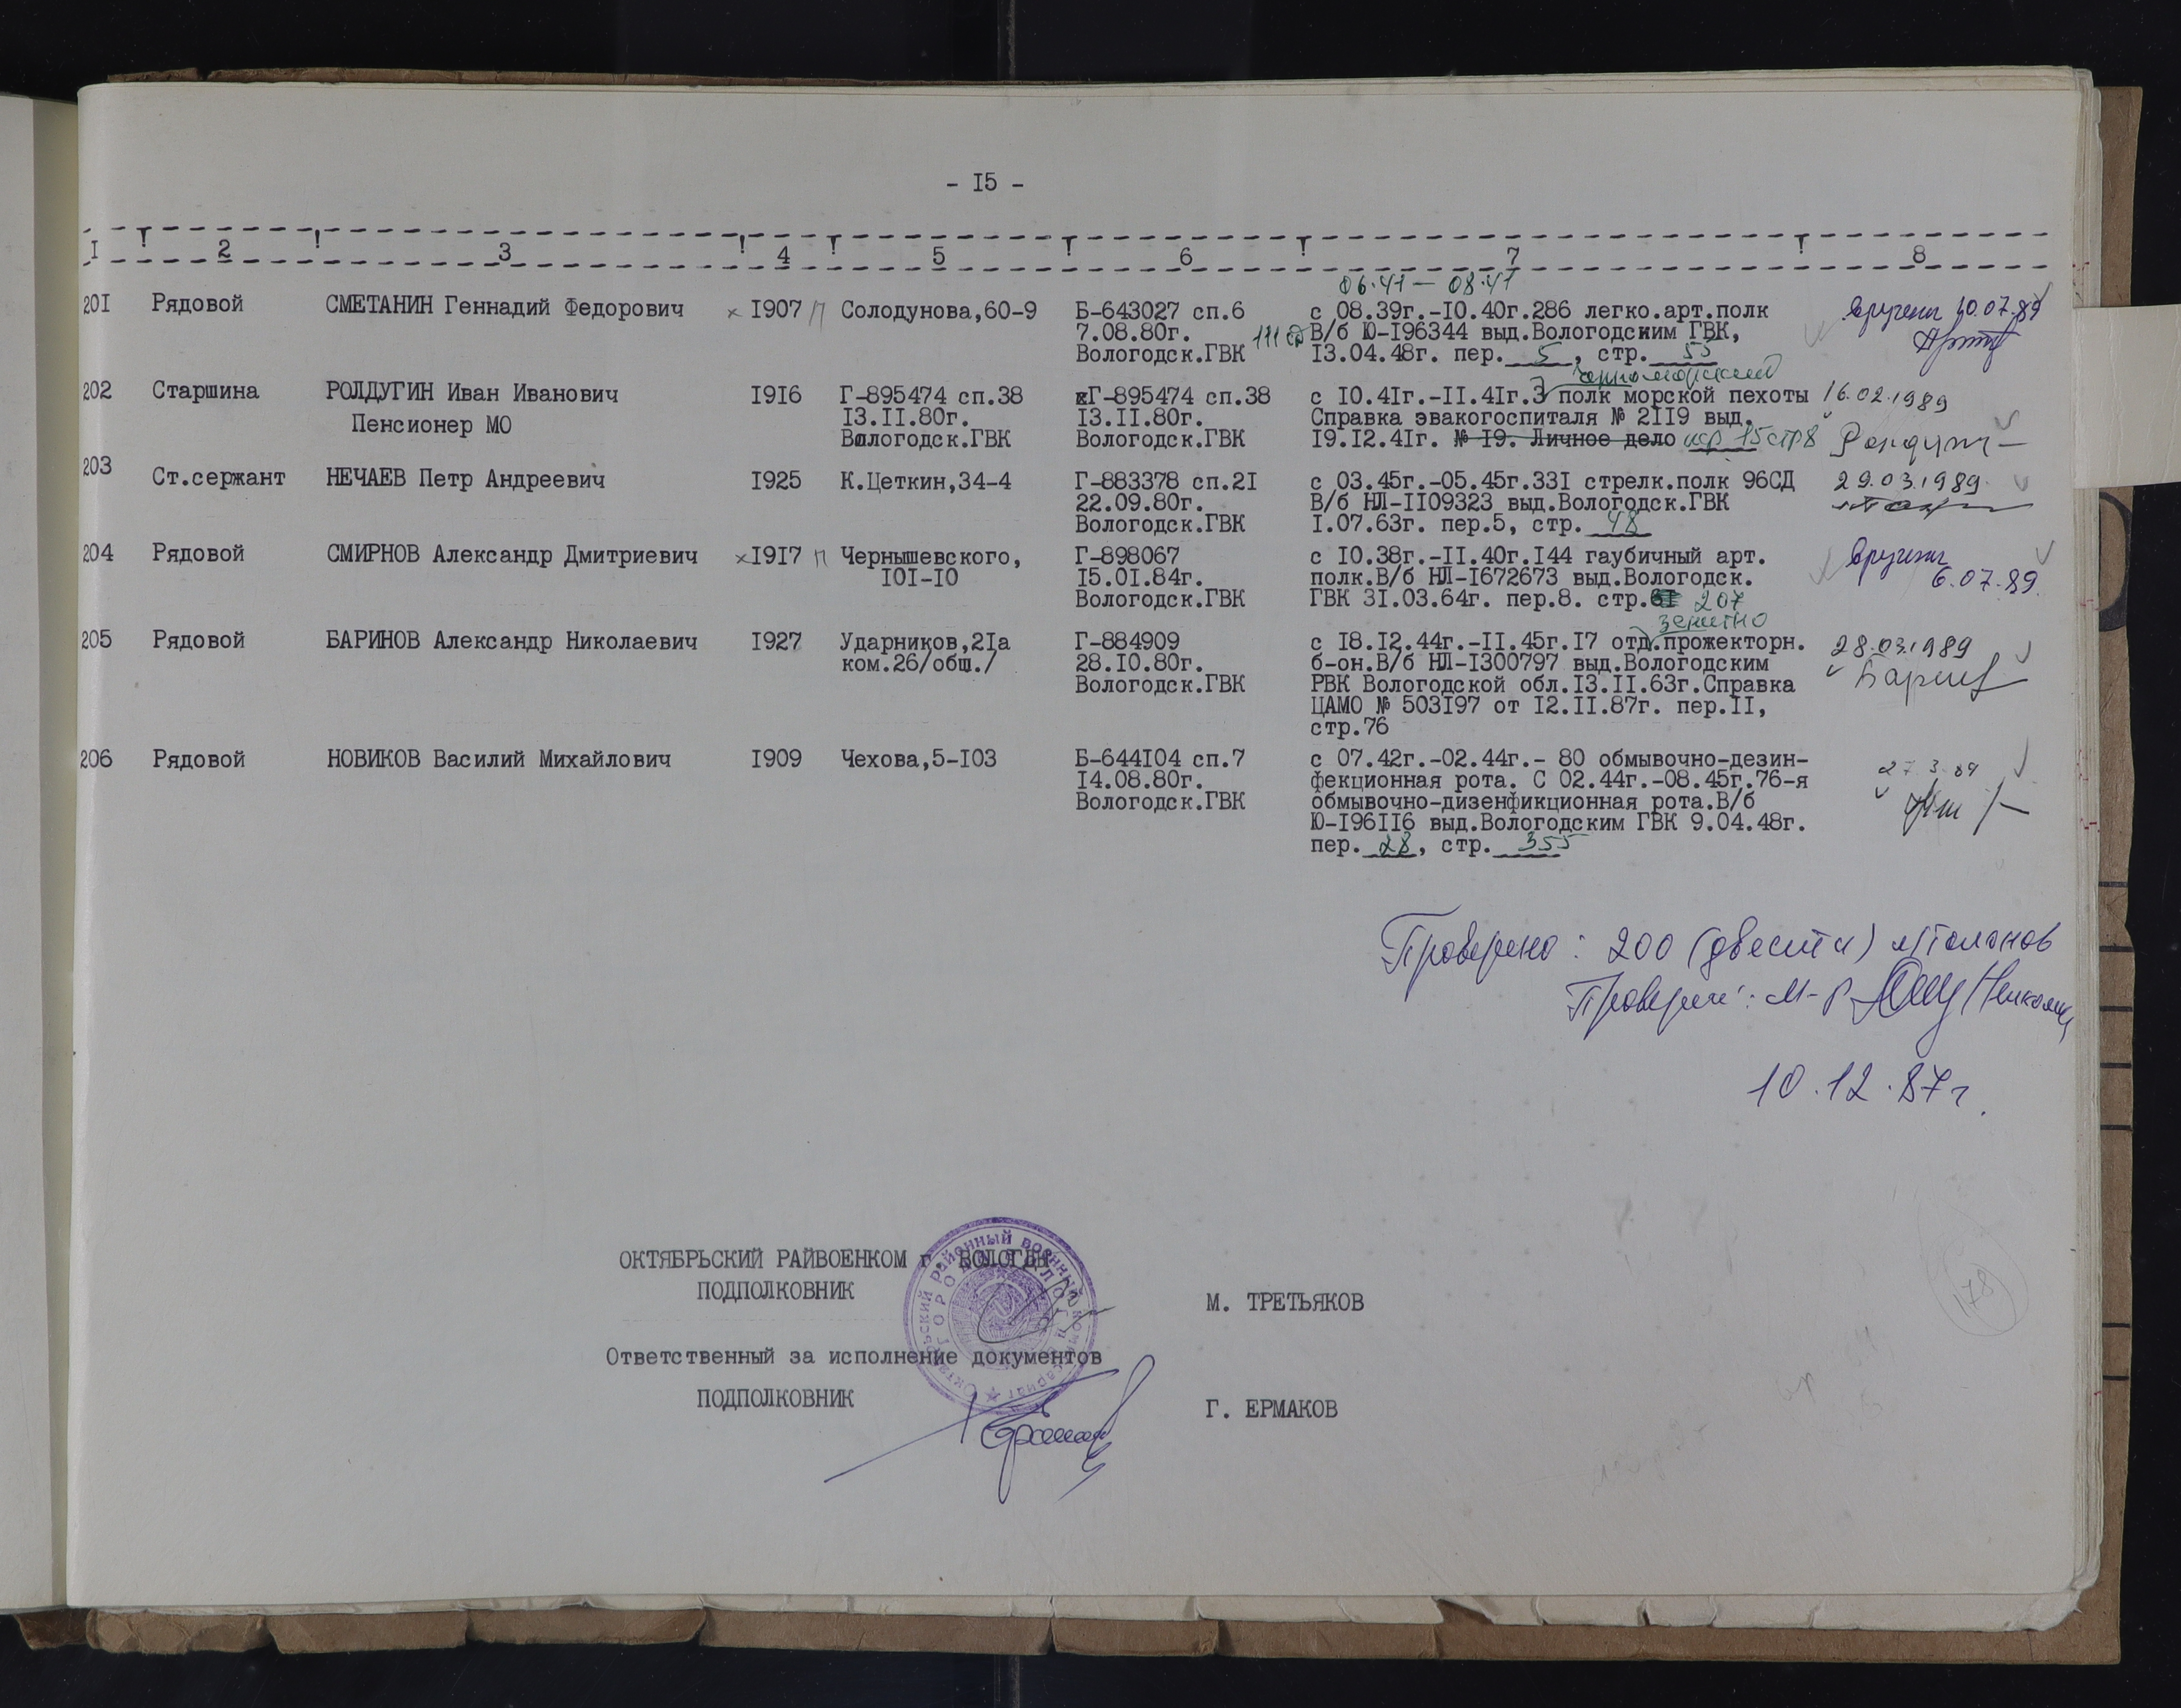 - I5 -
I ! 2 ! 3 ! 4 ! 5 ! 6 ! 7 ! 8
06.41 — 08.41
20I Рядовой СМЕТАНИН Геннадий Федорович х I907 П Солодунова,60-9 Б-643027 сп.6 с 08.39г.-I0.40г.286 легко.арт.полк вручена 10.07.89
7.08.80г. 111 сд В/б Ю-I96344 выд.Вологодским ГВК,
Вологодск.ГВК I3.04.48г. пер. 5, стр. 55
Черноморский
202 Старшина РОЛДУГИН Иван Иванович I9I6 Г-895474 сп.38 Г-895474 сп.38 с I0.4Iг.-II.4Iг.3 полк морской пехоты 16.02.1989
Пенсионер МО I3.II.80г. I3.II.80г. Справка эвакогоспиталя № 2II9 выд.
Вологодск.ГВК Вологодск.ГВК I9.I2.4Iг. № I9. Личное дело 15 стр 8
203 Ст.сержант НЕЧАЕВ Петр Андреевич I925 К.Цеткин,34-4 Г-883378 сп.2I с 03.45г.-05.45г.33I стрелк.полк 96СД 29.03.1989
22.09.80г. В/б НЛ-II09323 выд.Вологодск.ГВК
Вологодск.ГВК I.07.63г. пер.5, стр. 48
204 Рядовой СМИРНОВ Александр Дмитриевич х I9I7 П Чернышевского, Г-898067 с I0.38г.-II.40г.I44 гаубичный арт. вручена
I0I-I0 I5.0I.84г. полк.В/б НЛ-I672673 выд.Вологодск. 6.07.89
Вологодск.ГВК ГВК 3I.03.64г. пер.8. стр. 207
зенитно
205 Рядовой БАРИНОВ Александр Николаевич I927 Ударников,2Iа Г-884909 с I8.I2.44г.-II.45г.I7 отд.прожекторн. 28.03.1989
ком.26/общ./ 28.I0.80г. б-он.В/б НЛ-I300797 выд.Вологодским
Вологодск.ГВК РВК Вологодской обл.I3.II.63г.Справка
ЦАМО № 503I97 от I2.II.87г. пер.II,
стр.76
206 Рядовой НОВИКОВ Василий Михайлович I909 Чехова,5-I03 Б-644I04 сп.7 с 07.42г.-02.44г.- 80 обмывочно-дезин-
I4.08.80г. фекционная рота. С 02.44г.-08.45г.76-я 27.3.89
Вологодск.ГВК обмывочно-дизенфикционная рота.В/б
Ю-I96II6 выд.Вологодским ГВК 9.04.48г.
пер. 28, стр. 355
Проверено: 200 (двести)
Проверил: м-р
10.12.87г.
ОКТЯБРЬСКИЙ РАЙВОЕНКОМ г. ВОЛОГДЫ
ПОДПОЛКОВНИК М. ТРЕТЬЯКОВ
Ответственный за исполнение документов
ПОДПОЛКОВНИК Г. ЕРМАКОВ
178